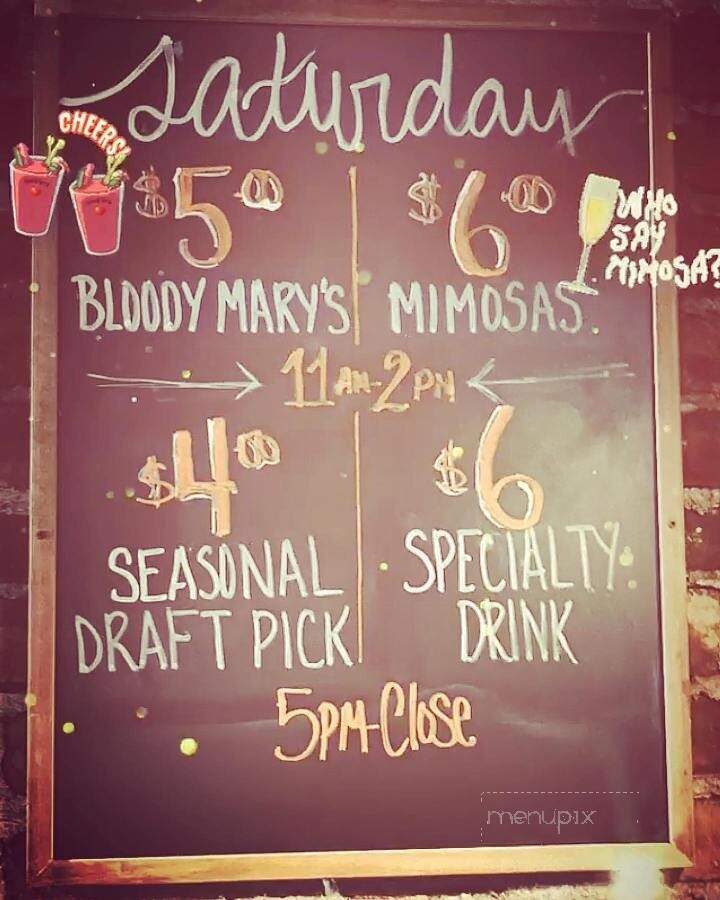 Saturday
CHEERS!
$5.00 $6.00
WHO
SAY
MIMOSA?
BLOODY MARY'S MIMOSAS
11AM-2PM
$4.00 $6
SEASONAL SPECIALTY
DRAFT PICK DRINK
5PM-Close
menupix